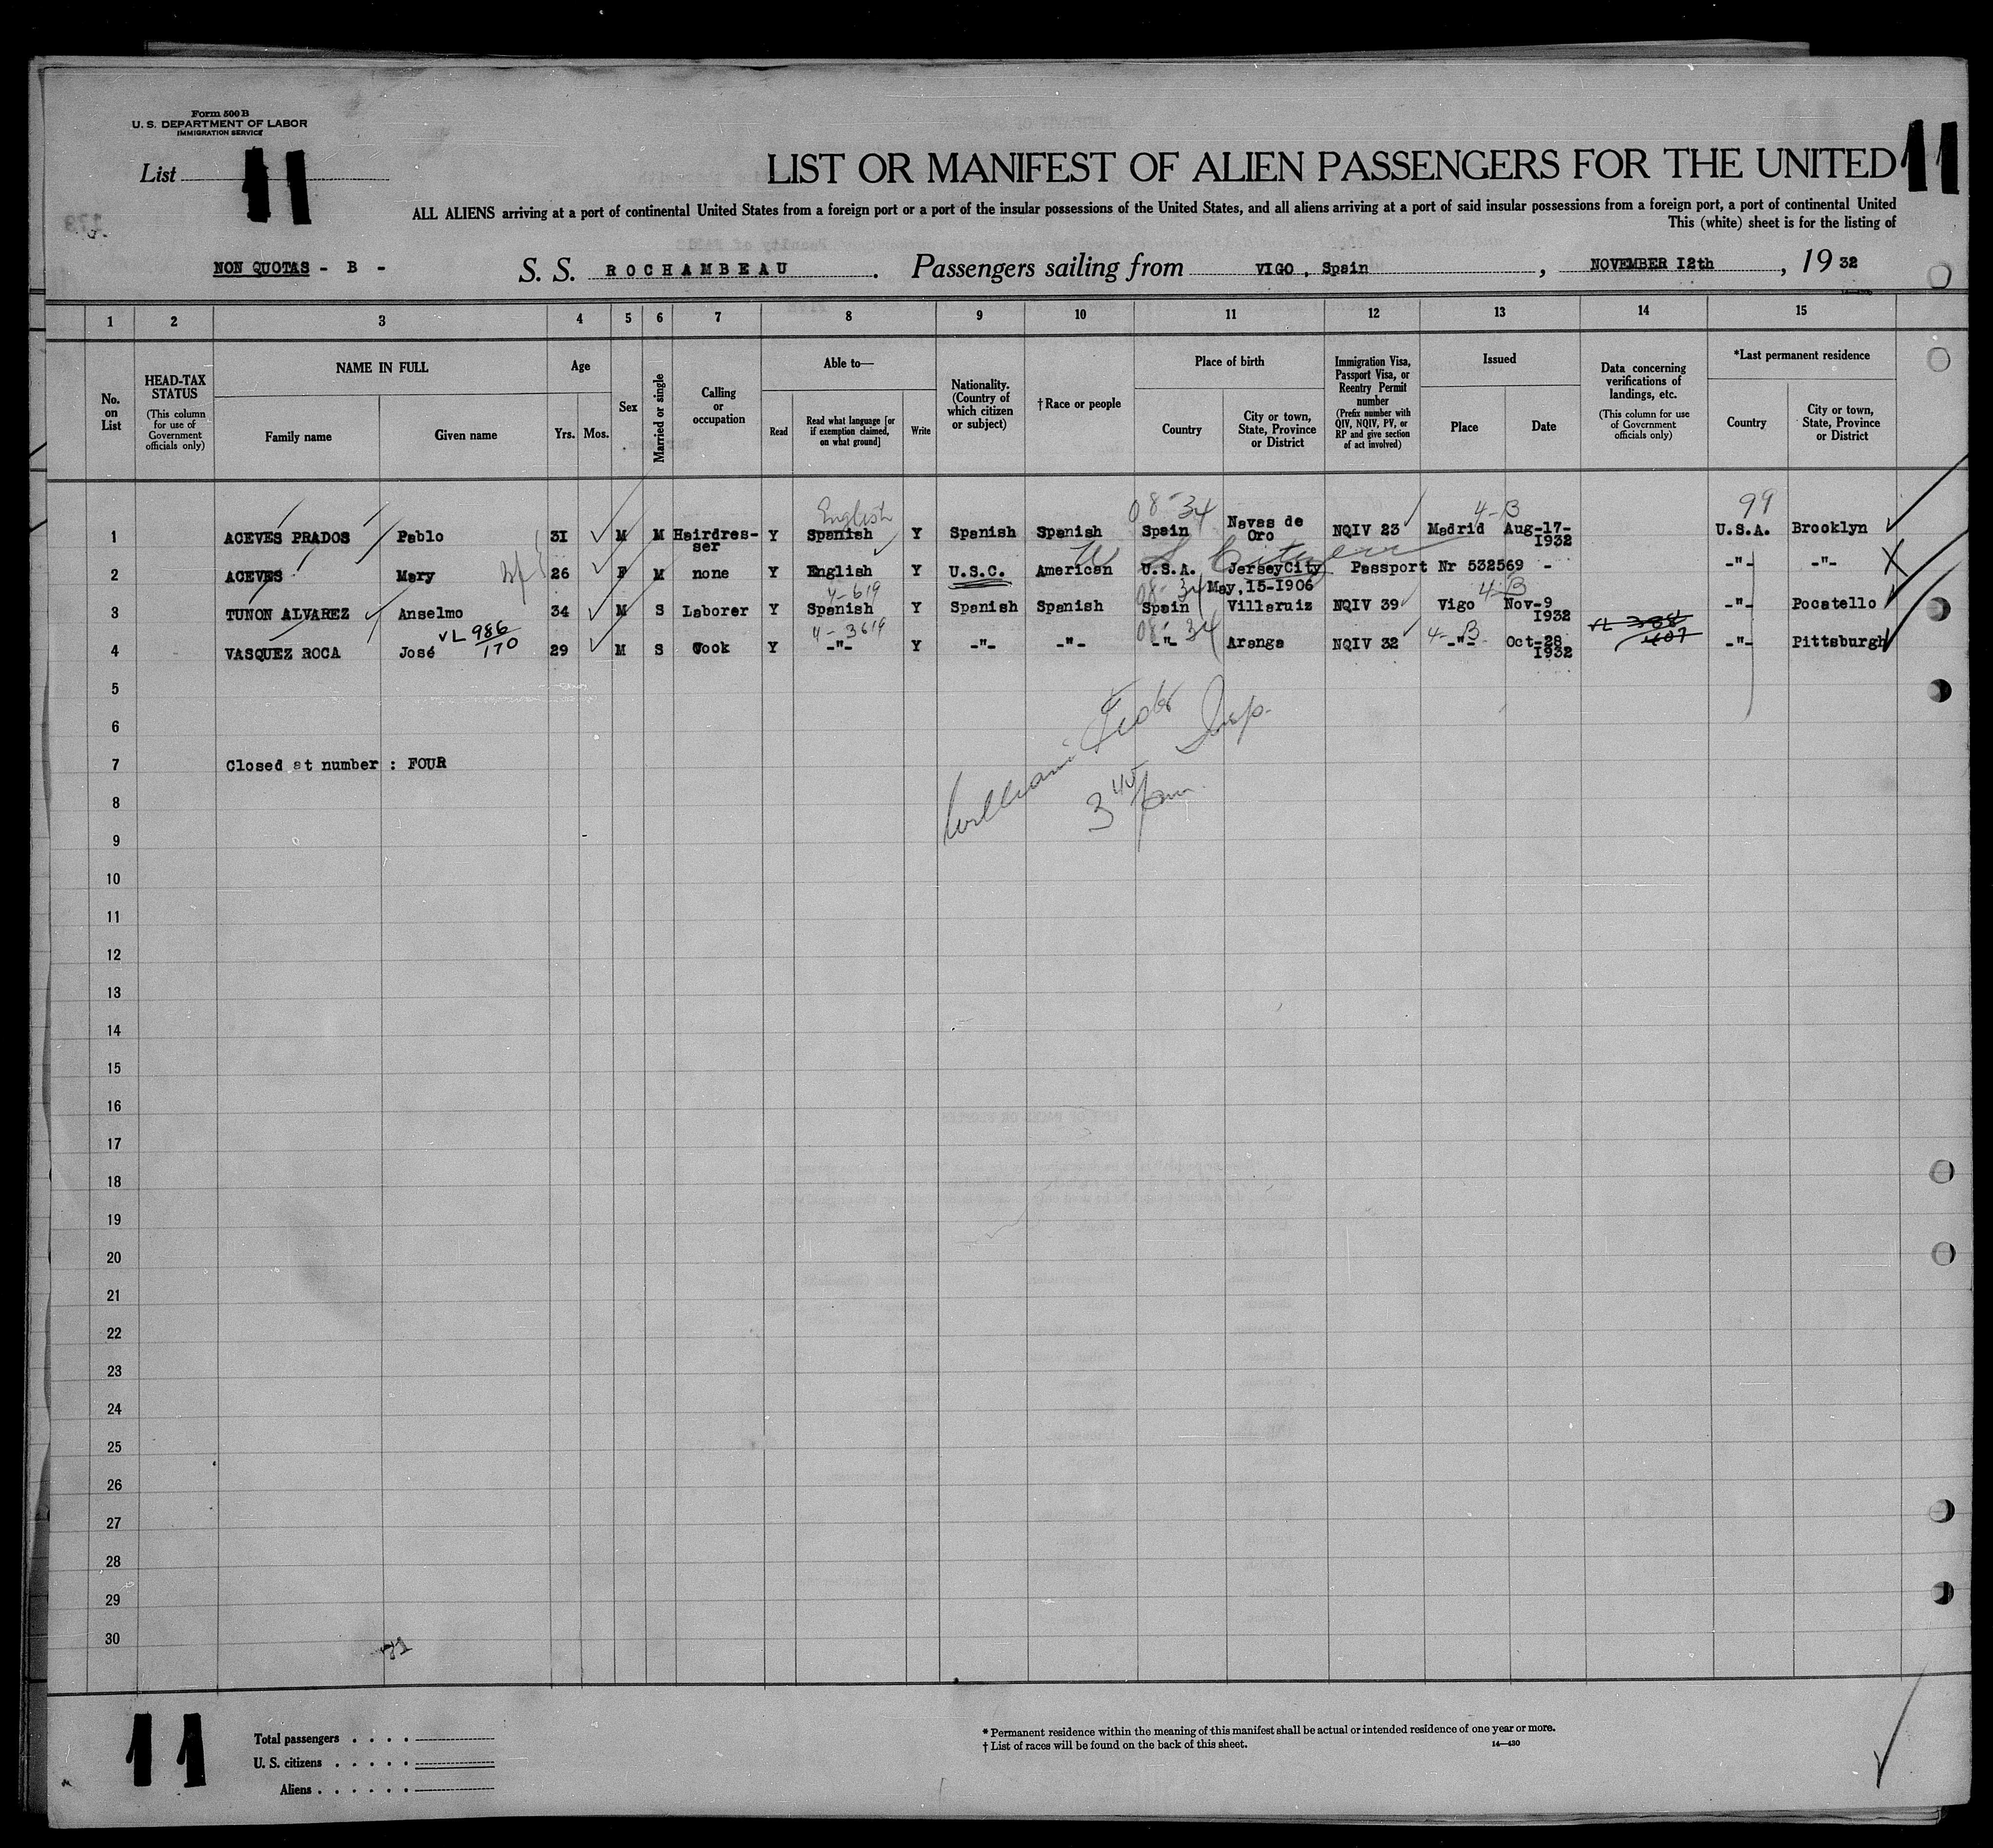 Form 500 B
U. S. DEPARTMENT OF LABOR
IMMIGRATION SERVICE
List 11
11
LIST OR MANIFEST OF ALIEN PASSENGERS FOR THE UNITED
ALL ALIENS arriving at a port of continental United States from a foreign port or a port of the insular possessions of the United States, and all aliens arriving at a port of said insular possessions from a foreign port, a port of continental United
This (white) sheet is for the listing of
NON QUOTAS - B -
S. S. ROCHAMBEAU . Passengers sailing from VIGO , Spain , NOVEMBER I2th , 19 32
1 2 3 4 5 6 7 8 9 10 11 12 13 14 15
No. on List
HEAD-TAX STATUS (This column for use of Government officials only)
NAME IN FULL
Family name Given name
Age
Yrs. Mos.
Sex
Married or single
Calling or occupation
Able to—
Read Read what language [or if exemption claimed, on what ground] Write
Nationality. (Country of which citizen or subject)
† Race or people
Place of birth
Country City or town, State, Province or District
Immigration Visa, Passport Visa, or Reentry Permit number (Prefix number with QIV, NQIV, PV, or RP and give section of act involved)
Issued
Place Date
Data concerning verifications of landings, etc. (This column for use of Government officials only)
*Last permanent residence
Country City or town, State, Province or District
English 08-34 4-B 99
1 ACEVES PRADOS Pablo 3I M M Hairdres-ser Y Spanish Y Spanish Spanish Spain Navas de Oro NQIV 23 Madrid Aug-17-1932 U.S.A. Brooklyn
U S Citizen
2 ACEVES Mary 26 F M none Y English Y U.S.C. American U.S.A. JerseyCity Passport Nr 532569 - -"- -"-
May,15-1906
4-619 08-34 4-B
3 TUNON ALVAREZ Anselmo 34 M S Laborer Y Spanish Y Spanish Spanish Spain Villaruiz NQIV 39 Vigo Nov-9 1932 -"- Pocatello
VL 986/170 4-3619 08-34 4-B
4 VASQUEZ ROCA José 29 M S Cook Y -"- Y -"- -"- -"- Aranga NQIV 32 -"- Oct-28 1932 -"- Pittsburgh
5
6
7 Closed at number : FOUR
William Insp.
3 45 pm.
8
9
10
11
12
13
14
15
16
17
18
19
20
21
22
23
24
25
26
27
28
29
30
11
Total passengers . . . .
U. S. citizens . . . . .
Aliens . . . . . .
* Permanent residence within the meaning of this manifest shall be actual or intended residence of one year or more.
† List of races will be found on the back of this sheet.
14—430